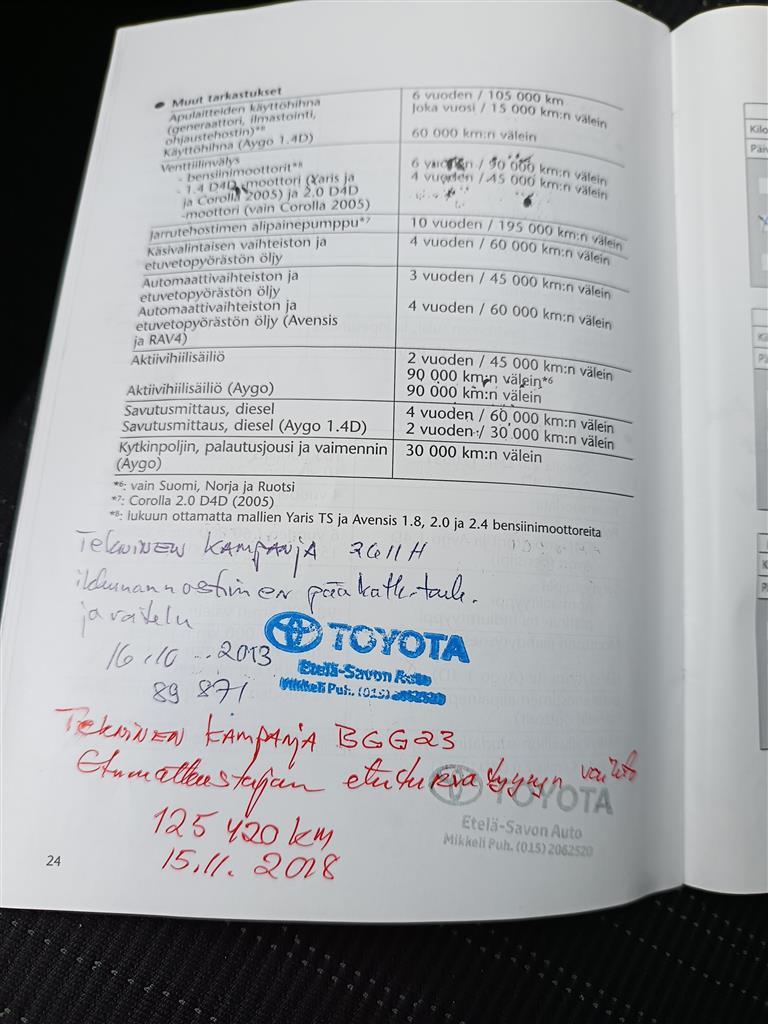 • Muut tarkastukset
Apulaitteiden käyttöhihna 6 vuoden / 105 000 km
(generaattori, ilmastointi, Joka vuosi / 15 000 km:n välein
ohjaustehostin)*⁸
Käyttöhihna (Aygo 1.4D) 60 000 km:n välein
Venttiilinvälys
- bensiinimoottorit*⁸ 6 vuoden / 90 000 km:n välein
- 1.4 D4D-moottori (Yaris ja 4 vuoden / 45 000 km:n välein
ja Corolla 2005) ja 2.0 D4D
-moottori (vain Corolla 2005)
Jarrutehostimen alipainepumppu*⁷ 10 vuoden / 195 000 km:n välein
Käsivalintaisen vaihteiston ja 4 vuoden / 60 000 km:n välein
etuvetopyörästön öljy
Automaattivaihteiston ja 3 vuoden / 45 000 km:n välein
etuvetopyörästön öljy
Automaattivaihteiston ja 4 vuoden / 60 000 km:n välein
etuvetopyörästön öljy (Avensis
ja RAV4)
Aktiivihiilisäiliö 2 vuoden / 45 000 km:n välein
90 000 km:n välein*⁶
Aktiivihiilisäiliö (Aygo) 90 000 km:n välein
Savutusmittaus, diesel 4 vuoden / 60 000 km:n välein
Savutusmittaus, diesel (Aygo 1.4D) 2 vuoden / 30 000 km:n välein
Kytkinpoljin, palautusjousi ja vaimennin 30 000 km:n välein
(Aygo)
*⁶: vain Suomi, Norja ja Ruotsi
*⁷: Corolla 2.0 D4D (2005)
*⁸: lukuun ottamatta mallien Yaris TS ja Avensis 1.8, 2.0 ja 2.4 bensiinimoottoreita
TEKNINEN KAMPANJA 2611H
ikkunannostimen pääkatk.
ja voitelu
16.10 2013
89 871
TOYOTA
Etelä-Savon Auto
Mikkeli Puh. (015) 2062520
TEKNINEN KAMPANJA BGG23
Etumatkustajan etuturvatyynyn vaihto
125 420 km
15.11. 2018
TOYOTA
Etelä-Savon Auto
Mikkeli Puh. (015) 2062520
24
Kilo
Päiv